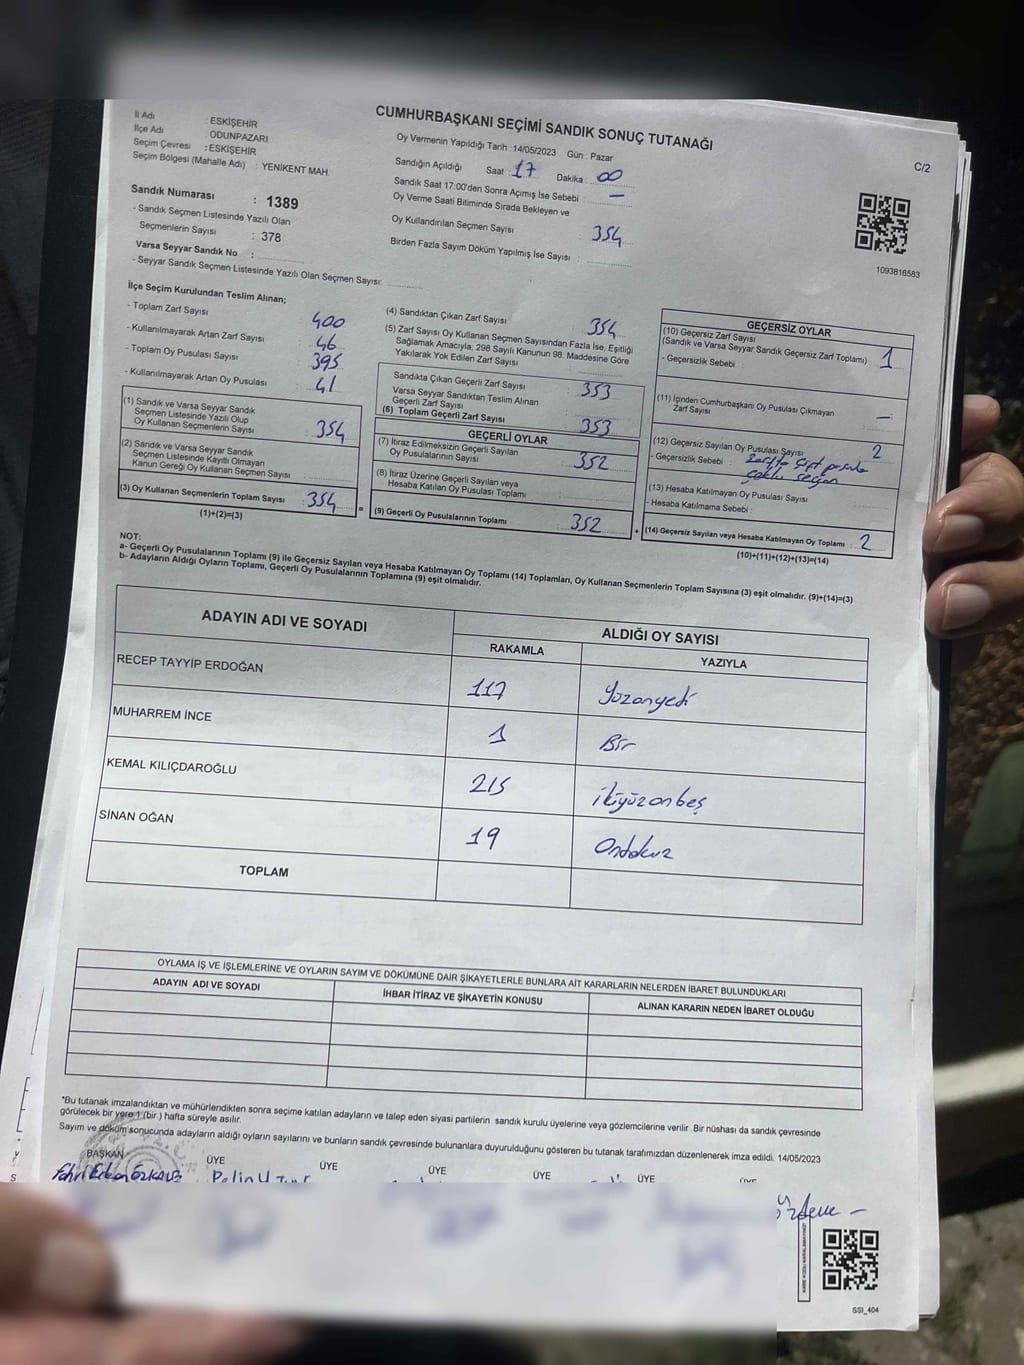 CUMHURBAŞKANI SEÇİMİ SANDIK SONUÇ TUTANAĞI
C/2
İl Adı : ESKİŞEHİR
İlçe Adı : ODUNPAZARI
Seçim Çevresi : ESKİŞEHİR
Seçim Bölgesi (Mahalle Adı) : YENİKENT MAH.
Sandık Numarası : 1389
- Sandık Seçmen Listesinde Yazılı Olan
Seçmenlerin Sayısı : 378
Varsa Seyyar Sandık No :
- Seyyar Sandık Seçmen Listesinde Yazılı Olan Seçmen Sayısı:
Oy Vermenin Yapıldığı Tarih :14/05/2023 Gün : Pazar
Sandığın Açıldığı Saat : 17 Dakika : 00
Sandık Saat 17:00'den Sonra Açılmış İse Sebebi : —
Oy Verme Saati Bitiminde Sırada Bekleyen ve
Oy Kullandırılan Seçmen Sayısı : 354
Birden Fazla Sayım Döküm Yapılmış İse Sayısı :
1093816583
İlçe Seçim Kurulundan Teslim Alınan;
- Toplam Zarf Sayısı : 400
- Kullanılmayarak Artan Zarf Sayısı : 46
- Toplam Oy Pusulası Sayısı : 395
- Kullanılmayarak Artan Oy Pusulası : 41
(1) Sandık ve Varsa Seyyar Sandık
Seçmen Listesinde Yazılı Olup
Oy Kullanan Seçmenlerin Sayısı : 354
(2) Sandık ve Varsa Seyyar Sandık
Seçmen Listesinde Kayıtlı Olmayan
Kanun Gereği Oy Kullanan Seçmen Sayısı :
(3) Oy Kullanan Seçmenlerin Toplam Sayısı : 354
(1)+(2)=(3)
=
(4) Sandıktan Çıkan Zarf Sayısı : 354
(5) Zarf Sayısı Oy Kullanan Seçmen Sayısından Fazla İse, Eşitliği
Sağlamak Amacıyla, 298 Sayılı Kanunun 98. Maddesine Göre
Yakılarak Yok Edilen Zarf Sayısı :
Sandıkta Çıkan Geçerli Zarf Sayısı : 353
Varsa Seyyar Sandıktan Teslim Alınan
Geçerli Zarf Sayısı :
(6) Toplam Geçerli Zarf Sayısı : 353
GEÇERLİ OYLAR
(7) İtiraz Edilmeksizin Geçerli Sayılan
Oy Pusulalarının Sayısı : 352
(8) İtiraz Üzerine Geçerli Sayılan veya
Hesaba Katılan Oy Pusulası Toplamı :
(9) Geçerli Oy Pusulalarının Toplamı : 352
+
GEÇERSİZ OYLAR
(10) Geçersiz Zarf Sayısı
(Sandık ve Varsa Seyyar Sandık Geçersiz Zarf Toplamı) : 1
- Geçersizlik Sebebi :
(11) İçinden Cumhurbaşkanı Oy Pusulası Çıkmayan
Zarf Sayısı : —
(12) Geçersiz Sayılan Oy Pusulası Sayısı : 2
- Geçersizlik Sebebi : Zarfta çift pusula
çoklu seçim
(13) Hesaba Katılmayan Oy Pusulası Sayısı :
- Hesaba Katılmama Sebebi :
(14) Geçersiz Sayılan veya Hesaba Katılmayan Oy Toplamı : 2
(10)+(11)+(12)+(13)=(14)
NOT:
a- Geçerli Oy Pusulalarının Toplamı (9) ile Geçersiz Sayılan veya Hesaba Katılmayan Oy Toplamı (14) Toplamları, Oy Kullanan Seçmenlerin Toplam Sayısına (3) eşit olmalıdır. (9)+(14)=(3)
b- Adayların Aldığı Oyların Toplamı, Geçerli Oy Pusulalarının Toplamına (9) eşit olmalıdır.
ADAYIN ADI VE SOYADI ALDIĞI OY SAYISI
RAKAMLA YAZIYLA
RECEP TAYYİP ERDOĞAN 117 Yüzonyedi
MUHARREM İNCE 1 Bir
KEMAL KILIÇDAROĞLU 215 ikiyüzonbeş
SİNAN OĞAN 19 Ondokuz
TOPLAM
OYLAMA İŞ VE İŞLEMLERİNE VE OYLARIN SAYIM VE DÖKÜMÜNE DAİR ŞİKAYETLERLE BUNLARA AİT KARARLARIN NELERDEN İBARET BULUNDUKLARI
ADAYIN ADI VE SOYADI İHBAR İTİRAZ VE ŞİKAYETİN KONUSU ALINAN KARARIN NEDEN İBARET OLDUĞU
*Bu tutanak imzalandıktan ve mühürlendikten sonra seçime katılan adayların ve talep eden siyasi partilerin sandık kurulu üyelerine veya gözlemcilerine verilir .Bir nüshası da sandık çevresinde
görülecek bir yere 1 (bir ) hafta süreyle asılır.
Sayım ve döküm sonucunda adayların aldığı oyların sayılarını ve bunların sandık çevresinde bulunanlara duyurulduğunu gösteren bu tutanak tarafımızdan düzenlenerek imza edildi. 14/05/2023
BAŞKAN ÜYE ÜYE ÜYE ÜYE ÜYE ÜYE
SSİ_404